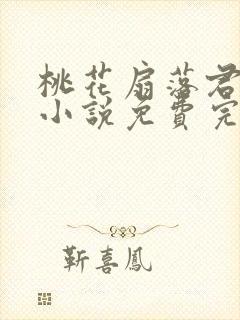 桃花扇落君
小說免費完
靳喜鳳